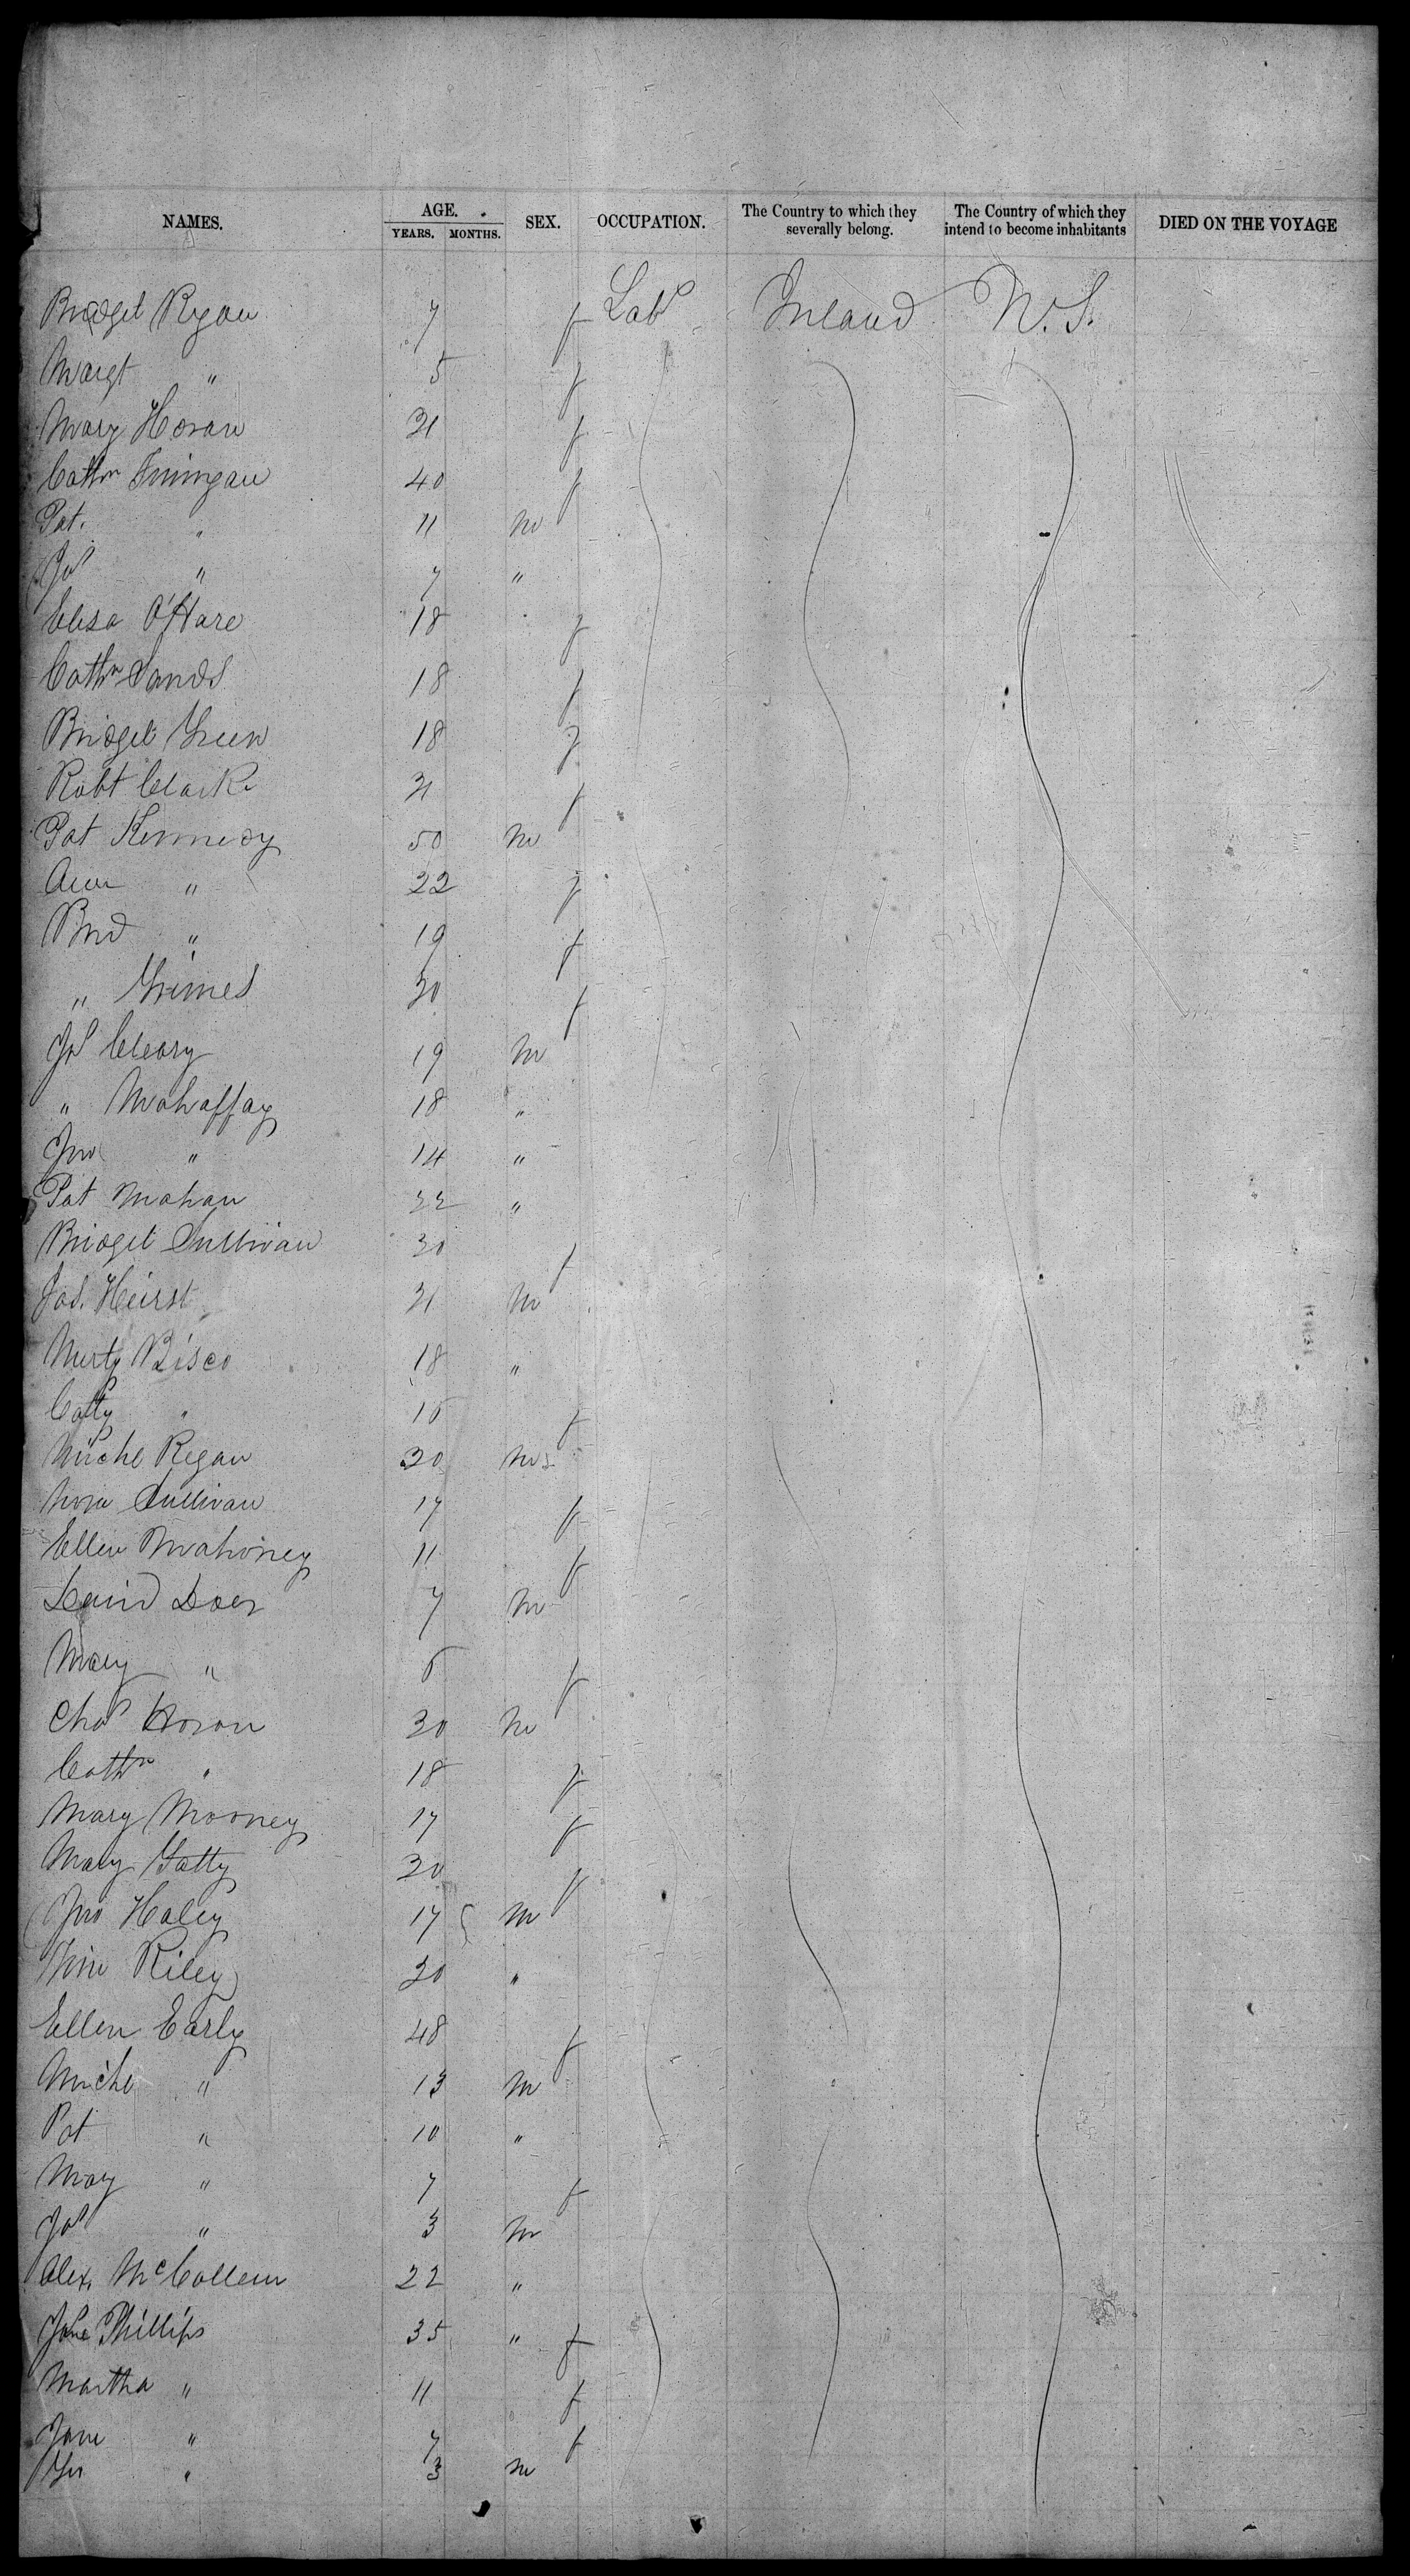 NAMES. AGE. SEX. OCCUPATION. The Country to which they severally belong. The Country of which they intend to become inhabitants DIED ON THE VOYAGE
YEARS. MONTHS.
Bridget Ryan 7 f Labr Ireland U.S.
Margt " 5 f
Mary Horan 21 f
Cathn Finnigan 40 f
Pat. " 11 m
Jas " 7 "
Eliza O'Hare 18 f
Cathn Sands 18 f
Bridget Green 18 f
Robt Clarke 21 f
Pat Kennedy 50 m
Ann " 22 f
Brid " 19 f
" Grimes 30 f
Jas Cleary 19 m
" Mahaffay 18 "
Jno " 14 "
Pat Mahan 22 "
Bridget Sullivan 30 f
Jas. Heirst 21 m
Murty Bisco 18 "
Catty " 15 f
Michl Regan 30 m
Nora Sullivan 17 f
Ellen Mahoney 11 f
David Doer 7 m
Mary " 5 f
Chas Horan 30 m
Cathn " 18 f
Mary Mooney 17 f
Mary Gatty 20 f
Jno Haley 17 m
Wm Riley 20 "
Ellen Early 48 f
Michl " 13 m
Pat " 10 "
Mary " 7 f
Jas " 3 m
Alex. McCollum 22 "
Jane Phillips 35 " f
Martha " 11 f
Jane " 7 f
Jno " 3 m